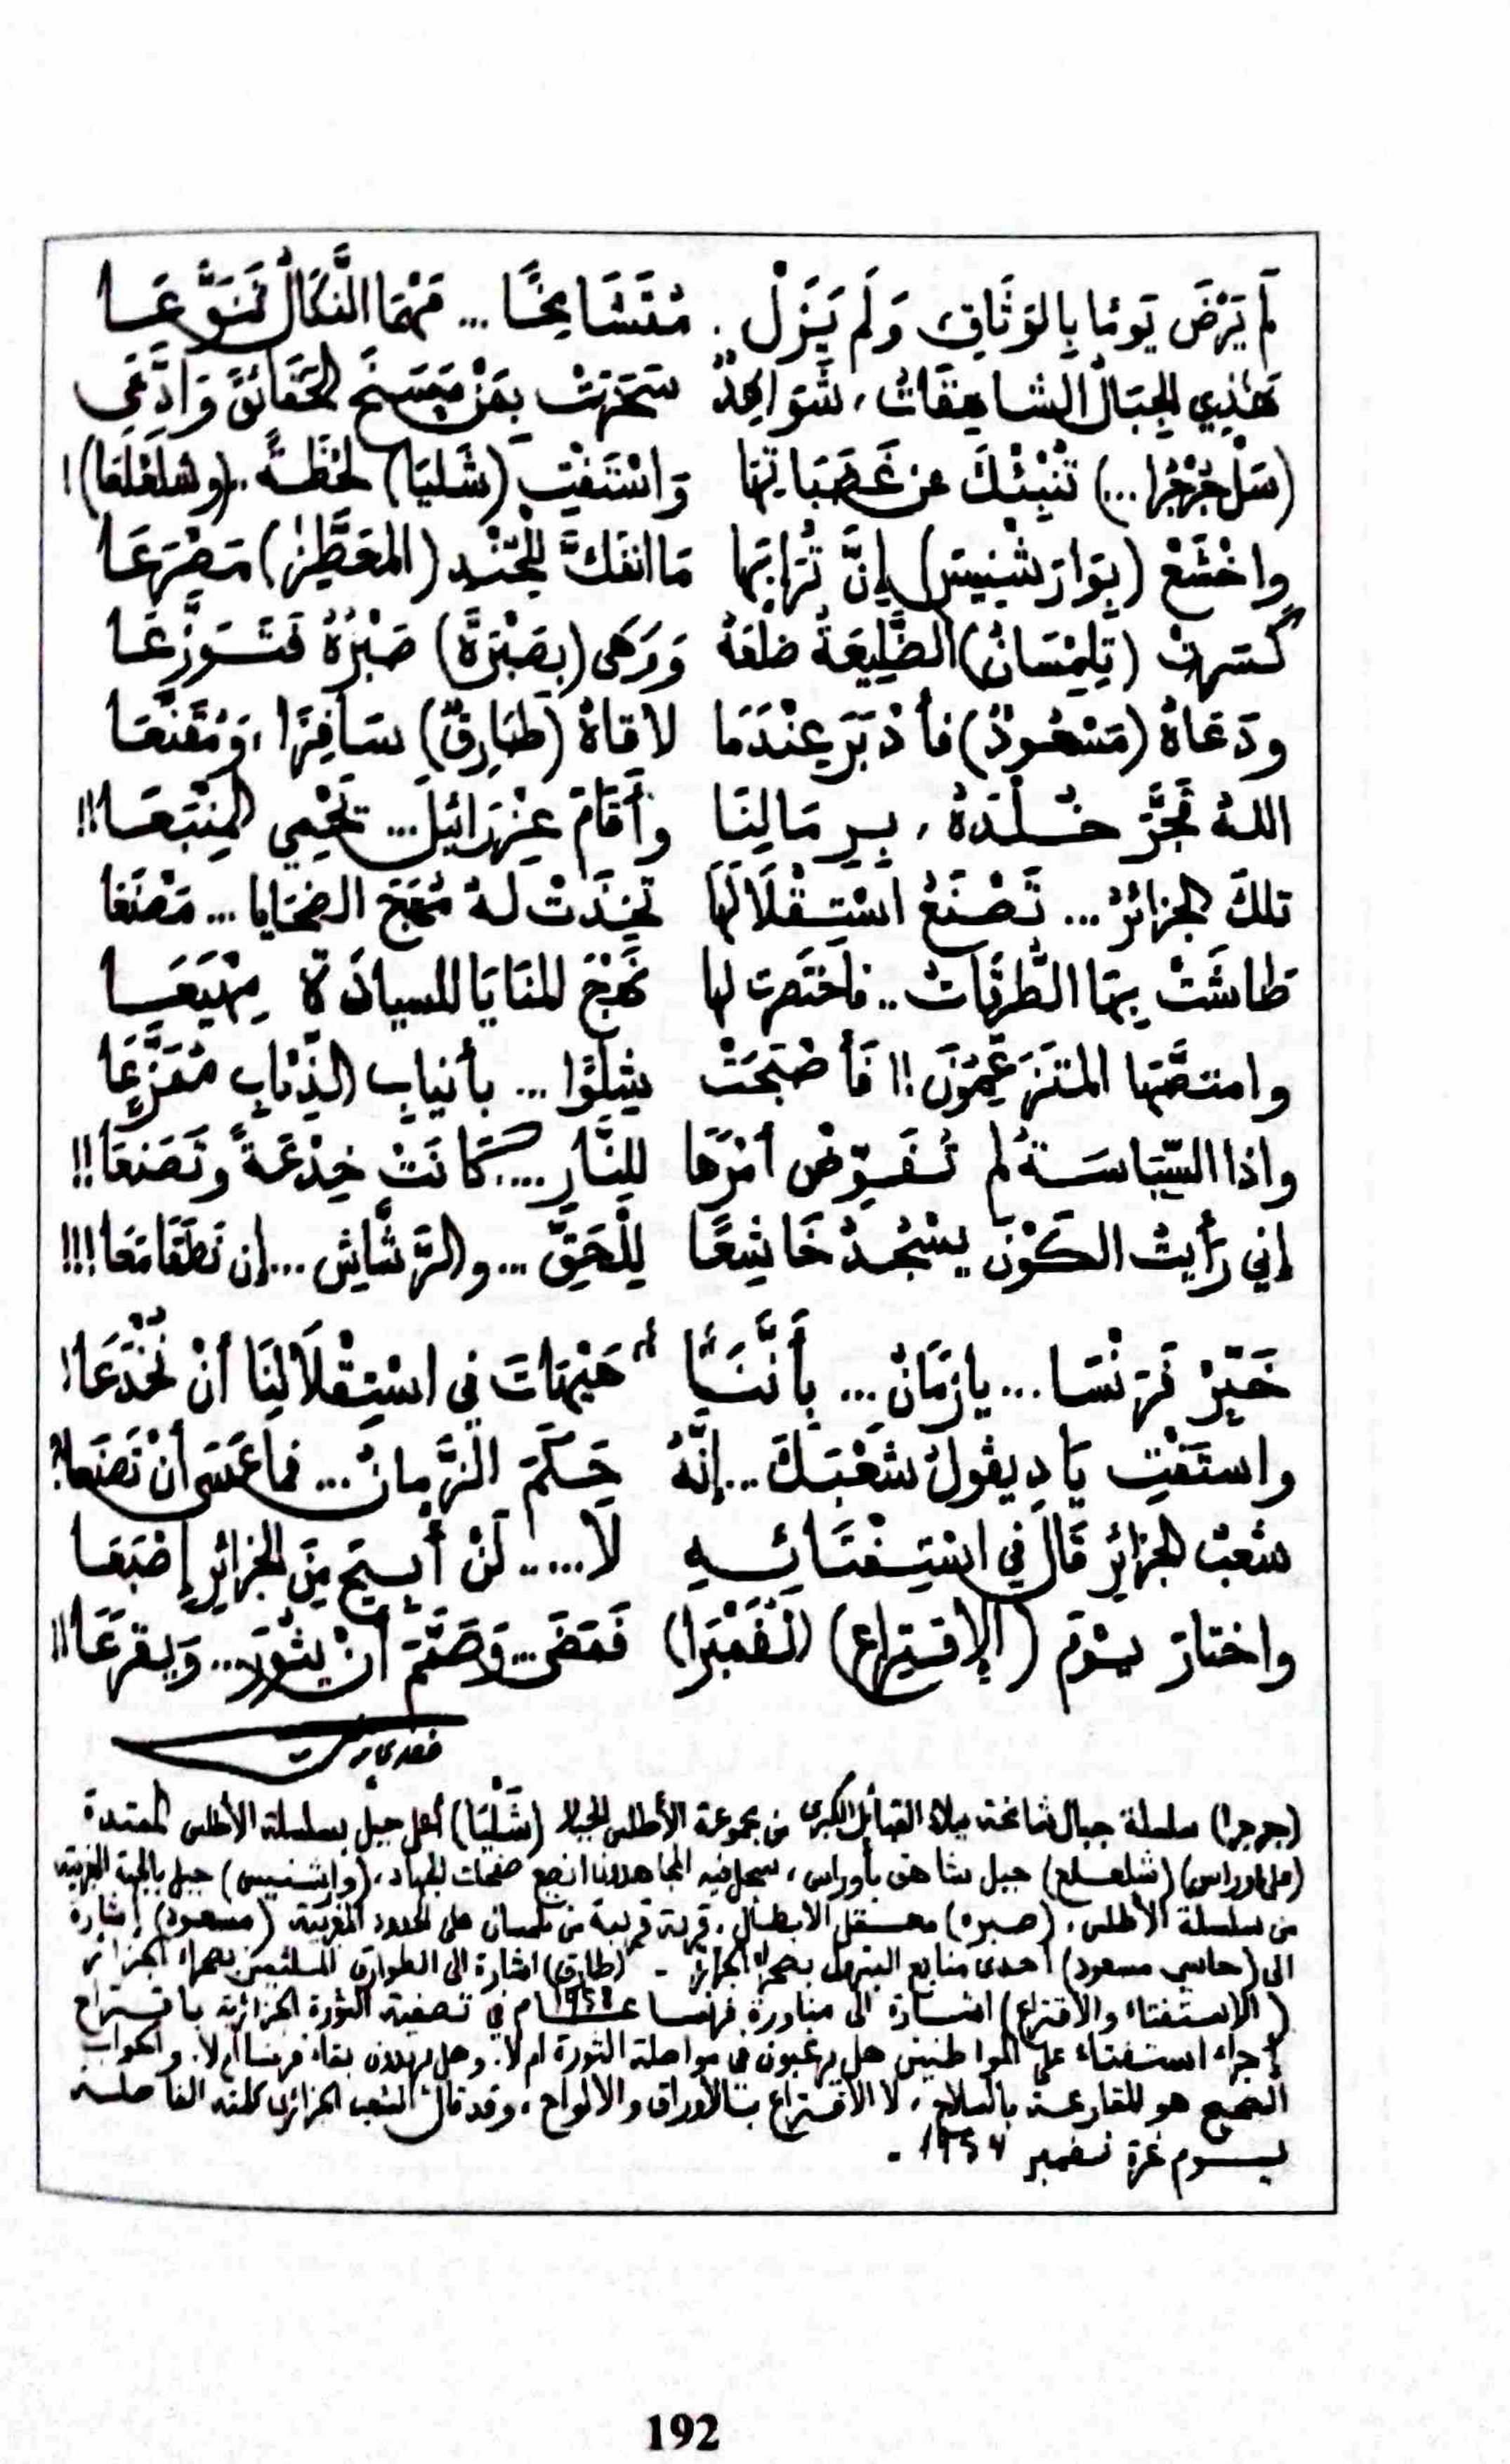 لَمْ يَرْضَ يَوْمًا بِالوَثَاقِ وَلَمْ يَزَلْ . مُتَشَامِخًا ... مَهْمَا النَّكَالُ تَنَوَّعَا
هٰذِي الجِبَالُ الشاهِقَاتُ، شَوَاهِدٌ سَخَرَتْ بِمَنْ مَسَخَ الحَقَائِقَ وَادَّعَى
(سَلْ جُرْجُرا...) تُنْبِئْكَ عن غَضَبَاتِهَا وَاسْتَفْتِ (شَلِيَا) لَحْظَةً.. (وشلَعْلَعَا)!
واخْشَعْ (بِوَارَشْنِيسَ) إِنَّ تُرَابَهَا مَا انفَكَّ لِلْجُنْدِ (المعَطَّرِ) مَصْرَعَا
كَسَرتْ (تِلِمْسَانُ) الضَّلِيعَةُ ضِلْعَهُ وَوَهَى (بِصَبْرَةَ) صَبْرُهُ فَتَوَزَّعَا
ودَعَاهُ (مَسْعُودٌ) فأَدْبَرَ عِنْدَمَا لاقاهُ (طَارِقُ) سَافِرًا، وَمُقَنَّعَا
اللهُ فَجَّرَ خُلْدَهُ، بِرِمَالِنَا وأَقَامَ عِزْرَائِيلَ... يَحْمِي المَنْبَعَا!!
تلكَ الجزائرُ... تَصْنَعُ اسْتِقْلَالَهَا تَخِذَتْ لهُ مُهَجَ الضحَايا... مَصْنَعَا
طاشَتْ بِهَا الطُّرُقَاتُ.. فاختَصَرت لها نَهْجَ المَنَايَا للسيادَةِ مِهْيَعَا
وامتصَّهَا المتَزَعِّمُونَ!! فَأَصْبَحَتْ شِلْوًا... بأنيابِ الذِّئابِ مُمَزَّعَا
واذا السِّيَاسَةُ لم تُفَوِّضْ أَمْرَهَا لِلنَّارِ.... كَانَتْ خِدْعَةً وتَصَنعَا!!
إني رَأيتُ الكَوْنَ يسْجُدُ خَاشِعًا لِلْحَقِّ... والرَّشَّاشِ... إن نَطَقَا مَعَا!!!
خَبِّرْ فَرَنْسَا... يازَمَانُ... بِأَنَّنَا هَيْهَاتَ في اسْتِقْلَالِنَا أَنْ نُخْدَعَا!
واستَفْتِ يَا دِيغولُ شَعْبَكَ... إِنَّهُ حَكَمَ الزَّمانُ... فما عَسَى أَنْ تَصْنَعا؟
شعْبُ الجزائرِ قالَ في اسْتِفْتَائِهِ لَا..... لَنْ أُبِيحَ مِنَ الجزائرِ إِصْبَعَا
واختارَ يوْمَ (الإقتِراعِ) (نُفَمْبَرا) فَمَضَى... وَصَمَّمَ أنْ يثُورَ... وَيقرَعَا!!
مفدي زكرياء
(جرجرا) سلسلة جبال شامخة ببلاد القبائل الكبرى من مجموعة الأطلس الجبلا (شَلْيَا) أعلى جبل بسلسلة الأطلس الممتدة
(على اوراس) (شلعلع) جبل شاهق بأوراس، سجل فيه المجاهدون انصع صفحات الجهاد، (وارشنيس) جبل بالجهة الغربية
من سلسلة الأطلس، (صبره) معقل الابطال، قرية قريبة من تلمسان على الحدود المغربية (مسعود) إشارة
الى (حاسي مسعود) احدى منابع البترول بصحراء الجزائر - (طارق) اشارة الى الطوارق الملثمين بصحراء الجزائر
(الاستفتاء والاقتراع) اشارة الى مناورة فرنسا عام ١٩٥٨ في تصفية الثورة الجزائرية باقتراح
إجراء استفتاء على المواطنين هل يرغبون في مواصلة الثورة ام لا. وهل يريدون بقاء فرنسا أم لا. والجواب
الصحيح هو المقارعة بالسلاح، لا الاقتراع بالأوراق والالواح، وقد قال الشعب الجزائري كلمته الفاصلة
يوم غرة نفمبر ١٩٥٤ .
192